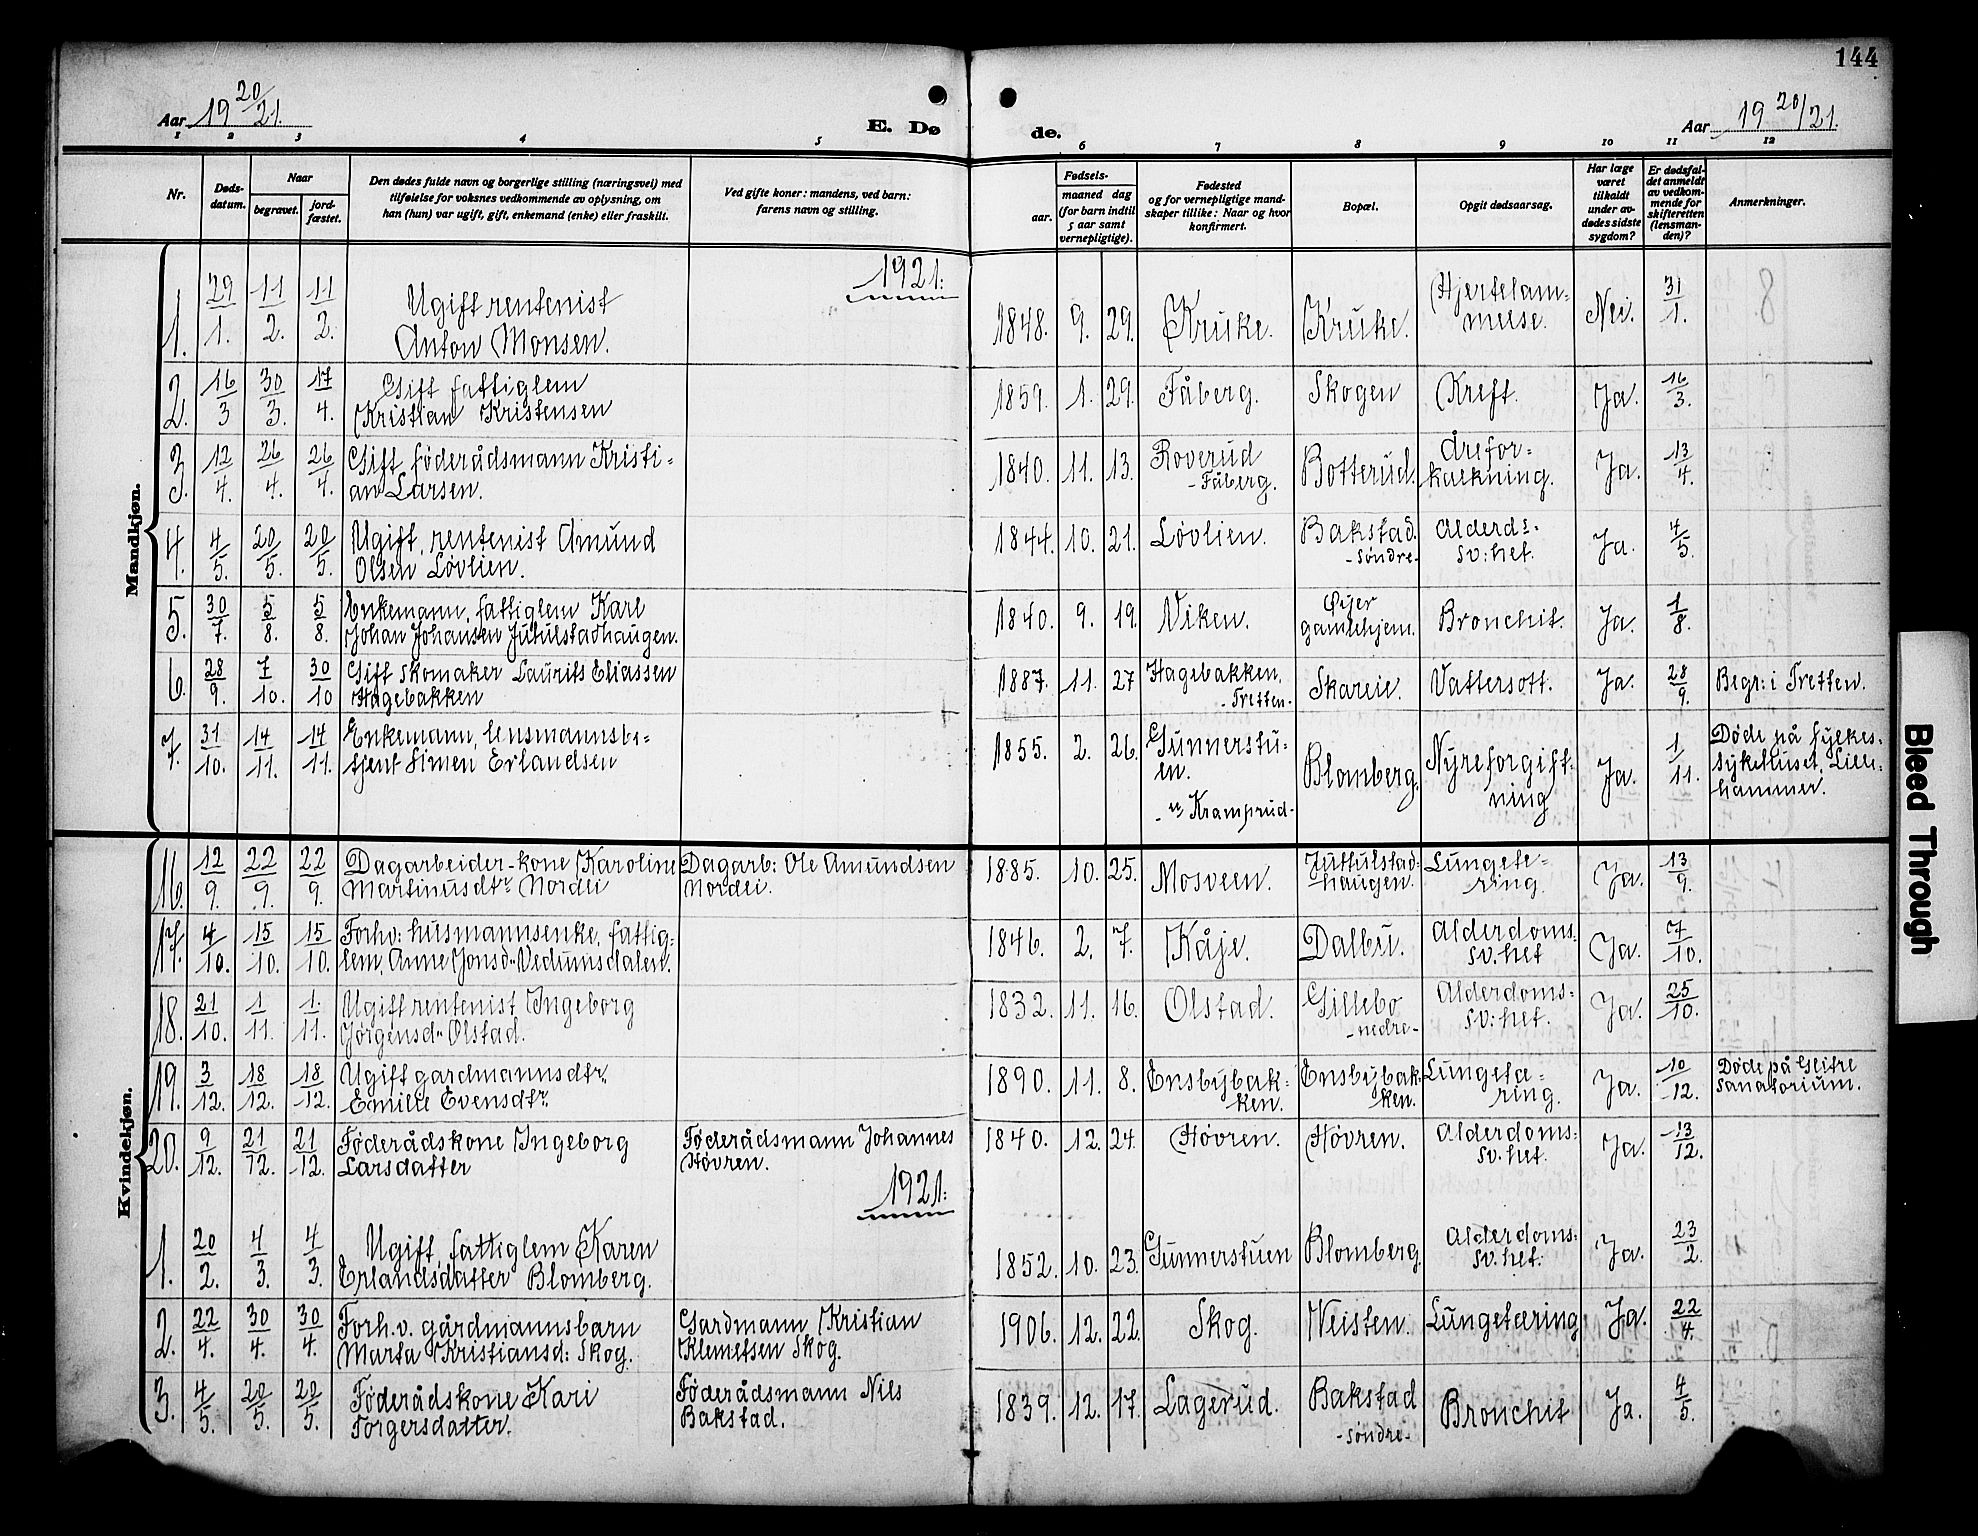 144
Aar 19 20/21.
E. Døde.
Aar 19 20/21.
1 2 3 4 5 6 7 8 9 10 11 12
Nr.
Døds-
datum.
Naar
begravet.
jord-
fæstet.
Den dødes fulde navn og borgerlige stilling (næringsvei) med
tilføielse for voksnes vedkommende av oplysning, om
han (hun) var ugift, gift, enkemand (enke) eller fraskilt.
Ved gifte koner: mandens, ved barn:
farens navn og stilling.
Fødsels-
aar.
maaned dag
(for barn indtil
5 aar samt
vernepligtige).
Fødested
og for vernepligtige mand-
skaper tillike: Naar og hvor
konfirmert.
Bopæl.
Opgit dødsaarsag.
Har læge
været
tilkaldt
under av-
dødes sidste
sygdom?
Er dødsfal-
det anmeldt
av vedkom-
mende for
skifteretten
(lensman-
den)?
Anmerkninger.
Mandkjøn.
1921:
1. 29/1. 11/2. 11/2. Ugift rentenist
Anton Monsen.
1848. 9. 29. Kruke. Kruke. Hjertelam-
melse. Nei. 31/1.
2. 16/3 30/3. 17/4. Gift fattiglem
Kristian Kristensen
1859. 1. 29. Fåberg. Skogen Kreft. Ja. 16/3.
3. 12/4. 26/4. 26/4. Gift føderådsmann Kristi=
an Larsen.
1840. 11. 13. Roverud
-Fåberg. Botterud. Årefor=
kalkning. Ja. 13/4.
4. 4/5. 20/5. 20/5. Ugift, rentenist Amund
Olsen Løvlien.
1844. 10. 21. Løvlien. Bakstad.
-søndre- Alderds-
sv:het. Ja. 4/5.
5. 30/7. 5/8. 5/8. Enkemann, fattiglem Karl
Johan Johansen Jutulstadhaugen.
1840. 9. 19. Viken. Øyer
gamlehjem. Bronchit. Ja. 1/8.
6. 28/9. 7/10. 30/10 Gift skomaker Laurits Eliassen
Hagebakken
1887. 11. 27 Hagebakken.
-Tretten- Skareie. Vattersott. Ja. 28/9. Begr: i Tretten.
7. 31/10. 14/11. 14/11. Enkemann, lensmannsbe=
tjent Simen Erlandsen
1855. 2. 26. Gunnerstu-
en.
- u/ Kramprud- Blomberg. Nyreforgift-
ning Ja. 1/11. Døde på fylkes-
sykehuset, Lille-
hammer.
Kvindekjøn.
16. 12/9. 22/9. 22/9. Dagarbeider-kone Karoline
Martinusdtr Nordei
Dagarb: Ole Amundsen
Nordei.
1885. 10. 25. Mosveen. Jutulstad-
haugen. Lungetæ-
ring. Ja. 13/9.
17. 4/10. 15/10. 15/10. Forhv: husmannsenke, fattig=
lem, Anne Jonsd. Vedumsdalen.
1846. 2. 7. Kåje. Dalbu. Alderdoms-
sv.het Ja. 7/10.
18. 21/10. 1/11. 1/11. Ugift rentenist Ingeborg
Jørgensd. Olstad.
1832. 11. 16. Olstad. Gillebo
-nedre- Alderdoms-
sv:het. Ja. 25/10.
19. 3/12. 18/12. 18/12. Ugift gardmannsdtr.
Emilie Evensdtr.
1890. 11. 8. Ensbybak-
ken. Ensbybak-
ken. Lungetæ-
ring. Ja. 10/12. Døde på Gleitre
sanatorium.
20. 9/12. 21/12. 21/12. Føderådskone Ingeborg
Larsdatter
Føderådsmann Johannes
Høvren.
1840. 12. 24. Høvren. Høvren. Alderdoms-
sv.het. Ja. 13/12.
1921:
1. 20/2. 4/3. 4/3. Ugift, fattiglem Karen
Erlandsdatter Blomberg.
1852. 10. 23. Gunnerstuen Blomberg. Alderdoms-
sv.het. Ja. 23/2.
2. 22/4. 30/4. 30/4. Forh.v. gårdmannsbarn
Marta Kristiansd: Skog.
Gardmann Kristian
Klemetsen Skog.
1906. 12. 22. Skog. Neisten. Lungetæring Ja. 22/4.
3. 4/5. 20/5. 20/5. Føderådskone Kari
Torgersdatter.
Føderådsmann Nils
Bakstad.
1839. 12. 17. Lagerud. Bakstad
-søndre- Bronchit Ja. 4/5.
Bleed Through